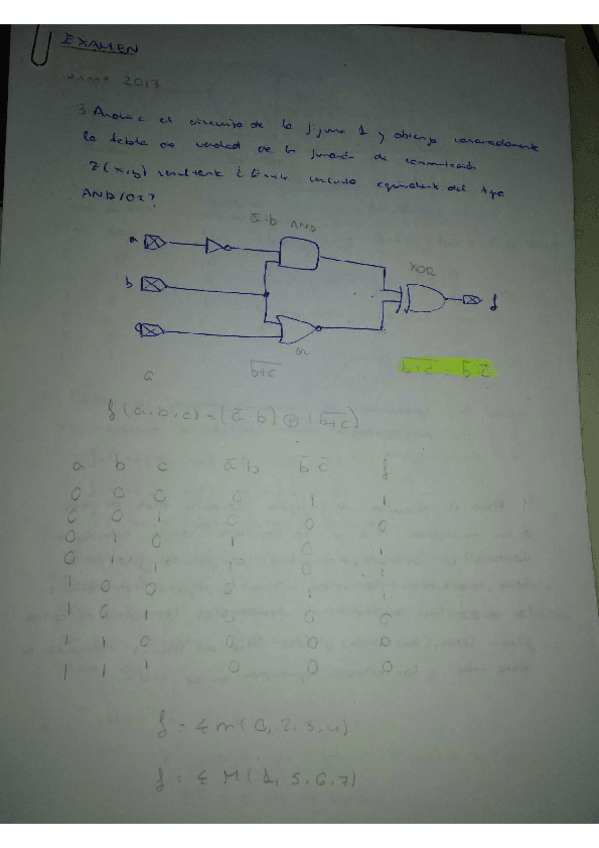 EXAMEN
2013
3 el circuito de la figura 1 y obtenga
la tabla de verdad de la función de conmutación
Z(x,y) resultante ¿ circuito equivalente del tipo
AND/OR?
a̅·b AND
a
XOR
b
f
c
OR
a
b+c̅
b+c̅ = b̅·c̅
f(a,b,c)=(a̅·b)⊕(b+c̅)
a b c a̅ b b̅ c̅ f
0 0 0 0 1 1
0 0 1 0 0 0
0 1 0 1 0 1
0 1 1 1 0 1
1 0 0 0 1 1
1 0 1 0 0 0
1 1 0 0 0 0
1 1 1 0 0 0
f = Σ m(0,2,3,4)
f = Σ M(1,5,6,7)